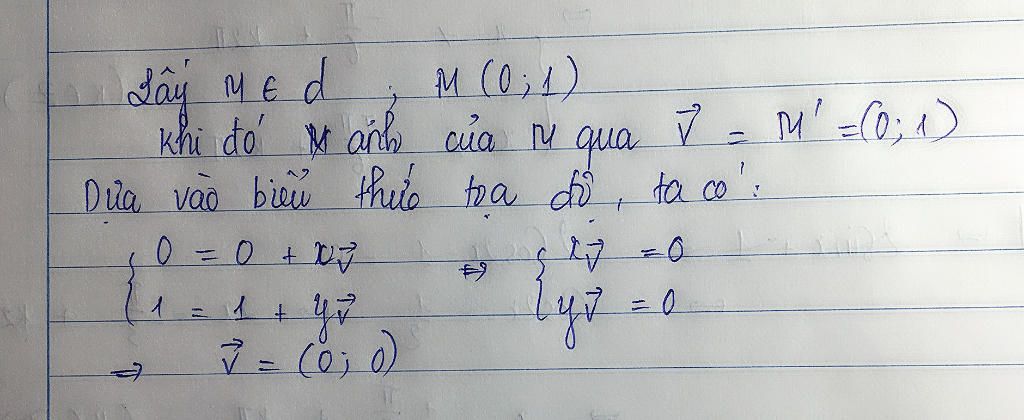 Lấy M ∈ d ; M (0 ; 1)
Khi đó ảnh của M qua v⃗ = M' = (0 ; 1)
Dựa vào biểu thức tọa độ, ta có :
{ 0 = 0 + xv⃗ ⇒ { xv⃗ = 0
{ 1 = 1 + yv⃗ { yv⃗ = 0
⇒ v⃗ = (0 ; 0)